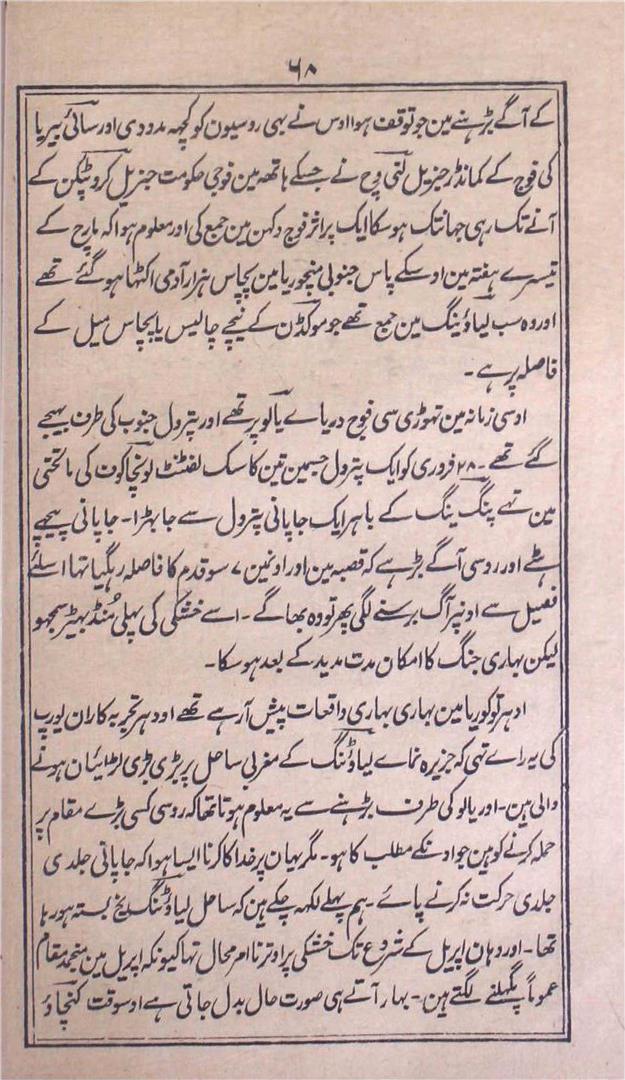 ۶۸
کے آگے بڑہنے مین جو توقف ہوا اوس نے بہی روسیون کو کچہہ مدد دی اور سائی بیریا
کی فوج کے کمانڈر جنریل لنی وچ نے جسکے ہاتھہ مین فوجی حکومت جنریل کروپٹکن کے
آنے تک رہی جہانتک ہوسکا ایک پراثر فوج دکہن مین جمع کی اور معلوم ہوا کہ مارچ کے
تیسرے ہفتہ مین اوسکے پاس جنوبی منچوریا مین پچاس ہزار آدمی اکٹہا ہوگئے تھے
اور وہ سب لیاؤینگ مین جمع تھے جو موکڈن کے نیچے چالیس یا پچاس میل کے
فاصلہ پر ہے ۔
اوسی زمانہ مین تہوڑی سی فوج دریاے یالو پر تھے اور پترول جنوب کی طرف بہیجے
گئے تھے ۔ ۲۸ فروری کو ایک پترول جسمین تین کاسک لفٹنٹ لونچاکوت کی ماتحتی
مین تہے پنگ ینگ کے باہر ایک جاپانی پترول سے جا بہڑا ۔ جاپانی پیچہے
ہٹے اور روسی آگے بڑہے کہ قصبہ مین اور اونین ۷ سو قدم کا فاصلہ رہگیا تہا اسلئے
فصیل سے اونپر آگ برسنے لگی پھر تو وہ بھاگے ۔ اسے خشکی کی پہلی مُنڈ بہیڑ سمجہو
لیکن بہاری جنگ کا امکان مدت مدید کے بعد ہوسکا ۔
ادہر تو کوریا مین بہاری بہاری واقعات پیش آرہے تھے اودہر تجربہ کاران یورپ
کی یہ راے تہی کہ جزیرہ نماے لیاؤٹنگ کے مغربی ساحل پر بڑی بڑی لڑائیان ہونے
والی ہین ۔ اور یالو کی طرف بڑہنے سے یہ معلوم ہوتا تھا کہ روسی کسی بڑے مقام پر
حملہ کرنے کو ہین جو اونکے مطلب کا ہو ۔ مگر یہان پر خدا کا کرنا ایسا ہوا کہ جاپانی جلدی
جلدی حرکت نہ کرنے پائے ۔ ہم پہلے لکہہ چکے ہین کہ ساحل لیاؤٹنگ یخ بستہ ہو رہا
تھا ۔ اور وہان اپریل کے شروع تک خشکی پر اوترنا امر محال تہا کیونکہ اپریل مین منجمد مقام
عموماً پگہلنے لگتے ہین ۔ بہار آتے ہی صورت حال بدل جاتی ہے اوسوقت کنچاؤ